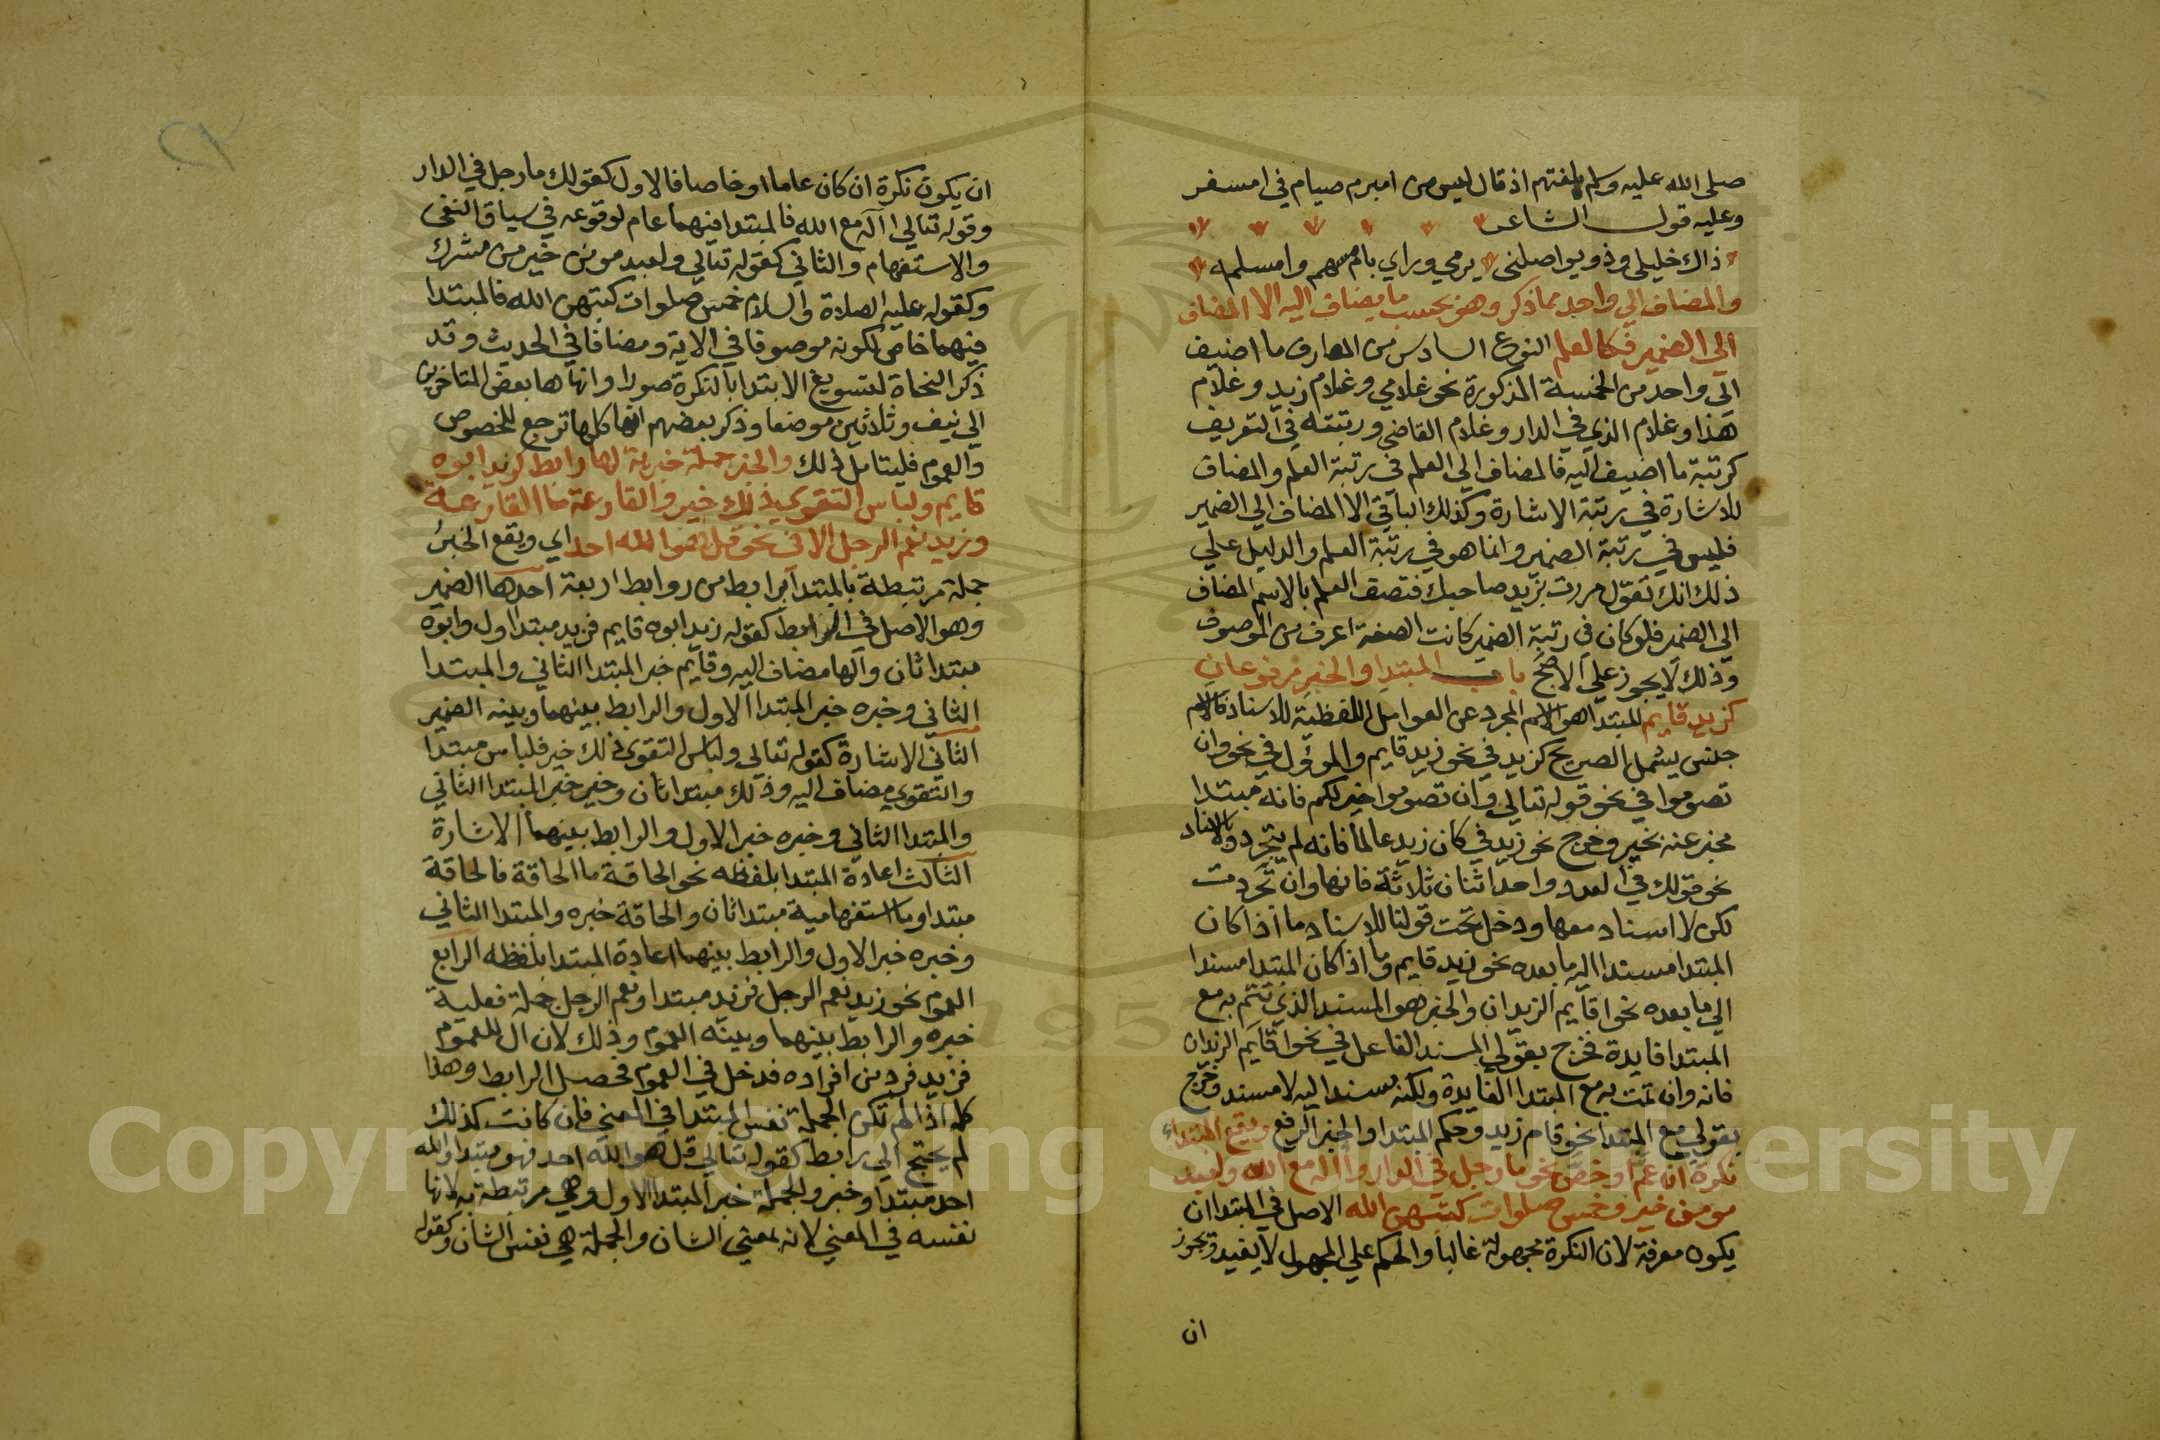 صلى الله عليه وسلم بلغتهم اذ قال ليس من امبرم صيام في امسفر
وعليه قول الشاعر
ذاك خليلي وذو يواصلني يرمي وراي بامسهم وامسلمه
والمضاف الي واحد مما ذكر وهو بحسب ما يضاف اليه الا المضاف
الي الضمير فكالعلم النوع السادس من المعارف ما اضيف
الي واحد من الخمسة المذكورة نحو غلامي وغلام زيد وغلام
هذا وغلام الذي في الدار وغلام القاضي ورتبته في التعريف
كرتبة ما اضيف اليه فالمضاف الي العلم في رتبة العلم والمضاف
للاشارة في رتبة الاشارة وكذلك الباقي الا المضاف الي الضمير
فليس في رتبة الضمير وانما هو في رتبة العلم والدليل علي
ذلك انك تقول مررت بزيد صاحبك فتصف العلم بالاسم المضاف
الي الضمير فلو كان في رتبة الضمير كانت الصفة اعرف من الموصوف
وذلك لا يجوز علي الاصح باب المبتدا والخبر مرفوعان
كزيد قايم المبتدا هو الاسم المجرد عن العوامل اللفظية للاسناد فالاسم
جنس يشمل الصريح كزيد في نحو زيد قايم والمؤول في نحو وان
تصوموا في نحو قوله تعالي وان تصوموا خير لكم فانه مبتدا
مخبر عنه بخير وخرج نحو زيد في كان زيد عالما فانه لم يتجرد وبالاسناد
نحو قولك في العدد واحد اثنان ثلاثة فانها وان تجردت
لكن لا اسناد معها ودخل تحت قولنا للاسناد ما اذا كان
المبتدا مسندا اليه ما بعده نحو زيد قايم وما اذا كان المبتدا مسندا
الي ما بعده نحو اقايم الزيدان والخبر هو المسند الذي تتم به مع
المبتدا فايدة فخرج بقولي المسند الفاعل في نحو اقايم الزيدان
فانه وان تمت به مع المبتدا الفايدة ولكنه مسند اليه لا مسند وخرج
بقولي مع المبتدا نحو قام زيد وحكم المبتدا والخبر الرفع ويقع المبتداء
نكرة ان عم او خص نحو ما رجل في الدار واآله مع الله ولعبد
مومن خير وخمس صلوات كتبهن الله الاصل في المبتدا ان
يكون معرفة لان النكرة مجهولة غالبا والحكم علي المجهول لا يفيد ويجوز
ان
ان يكون نكرة ان كان عاما او خاصا فالاول كقولك ما رجل في الدار
وقوله تعالي اآله مع الله فالمبتدا فيهما عام لوقوعه في سياق النفى
والاستفهام والثاني كقوله تعالي ولعبد مومن خير من مشرك
وكقوله عليه الصلاة والسلام خمس صلوات كتبهن الله فالمبتدا
فيهما خاص لكونه موصوفا في الاية ومضافا في الحديث وقد
ذكر النحاة لتسويغ الابتدا بالنكرة صورا وانهاها بعض المتاخرين
الي نيف وثلاثين موضعا وذكر بعضهم انها كلها ترجع للخصوص
والعموم فليتامل ذلك والخبر جملة خبرية لها رابط كزيد ابوه
قايم ولباس التقوي ذلك خير والقارعة ما القارعة
وزيد نعم الرجل الا في نحو قل هو الله احد اي ويقع الخبر
جملة مرتبطة بالمبتدا برابط من روابط اربعة احدها الضمير
وهو الاصل في الرابط كقوله زيد ابوه قايم فزيد مبتدا اول وابوه
مبتدا ثان والها مضاف اليه وقايم خبر المبتدا الثاني والمبتدا
الثاني وخبره خبر المبتدا الاول والرابط بينهما وبينه الضمير
الثاني الاشارة كقوله تعالي ولباس التقوي ذلك خير فلباس مبتدا
والتقوي مضاف اليه وذلك مبتدا ثان وخير خبر المبتدا الثاني
والمبتدا الثاني وخبره خبر الاول والرابط بينهما الاشارة
الثالث اعادة المبتدا بلفظه نحو الحاقة ما الحاقة فالحاقة
مبتدا وما استفهامية مبتدا ثان والحاقة خبره والمبتدا الثاني
وخبره خبر الاول والرابط بينهما اعادة المبتدا بلفظه الرابع
العموم نحو زيد نعم الرجل فزيد مبتدا ونعم الرجل جملة فعلية
خبره والرابط بينهما وبينه العموم وذلك لان ال للعموم
فزيد فرد من افراده فدخل في العموم فحصل الرابط وهذا
كله اذا لم تكن الجملة نفس المبتدا في المعني فان كانت كذلك
لم يحتج الي رابط كقوله تعالي قل هو الله احد فهو مبتدا والله
احد مبتدا وخبر والجملة خبر المبتدا الاول وهي مرتبطة به لانها
نفسه في المعني لانه بمعني الشان والجملة هي نفس الشان وكقوله
Copyright © King Saud University